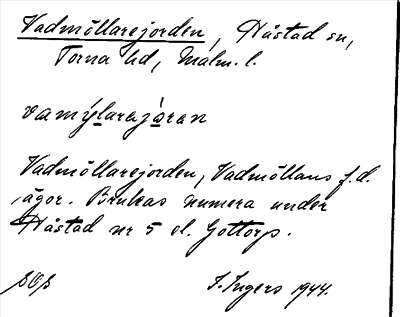 Vadmöllarejorden, Håstad sn,
Torna hd, Malm. l.
vamýlarejåren
Vadmöllarejorden, Vadmöllans f.d.
ägor. Brukas numera under
Håstad nr 5 el. Gottorp.
I. Ingers 1944.